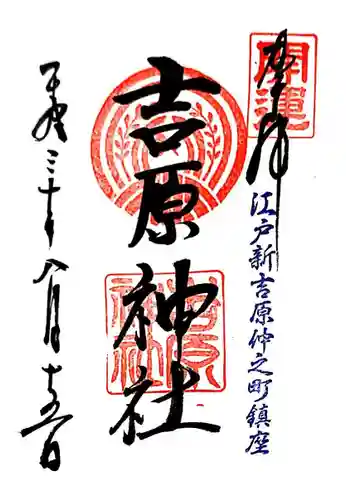 奉拝
開運
江戸新吉原仲之町鎮座
吉原神社
平成三十年八月十五日